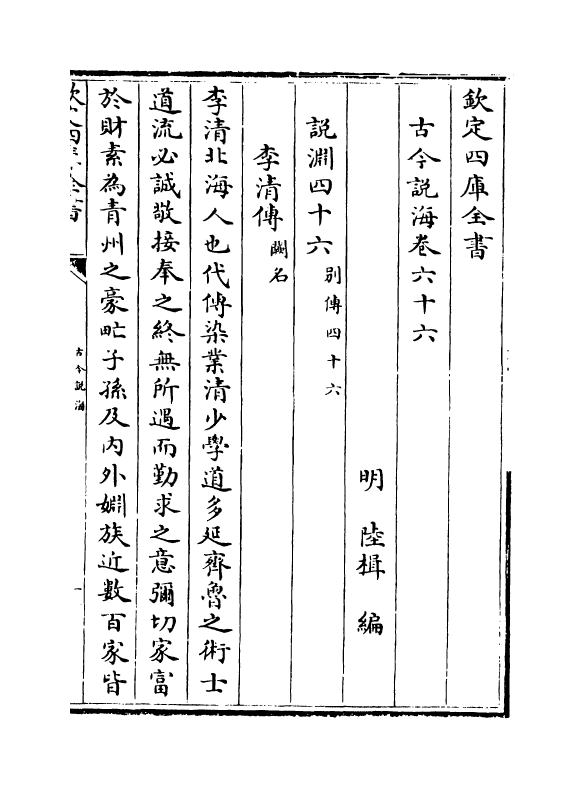 欽定四庫全書
古今説海卷六十六
明 陸楫 編
説淵四十六 别傳四十六
李清傳 闕名
李清北海人也代傳染業清少學道多延齊魯之術士
道流必誠敬接奉之終無所遇而勤求之意彌切家富
於財素為青州之豪甿子孫及内外婣族近數百家皆
欽定四庫全書
古今説海
一